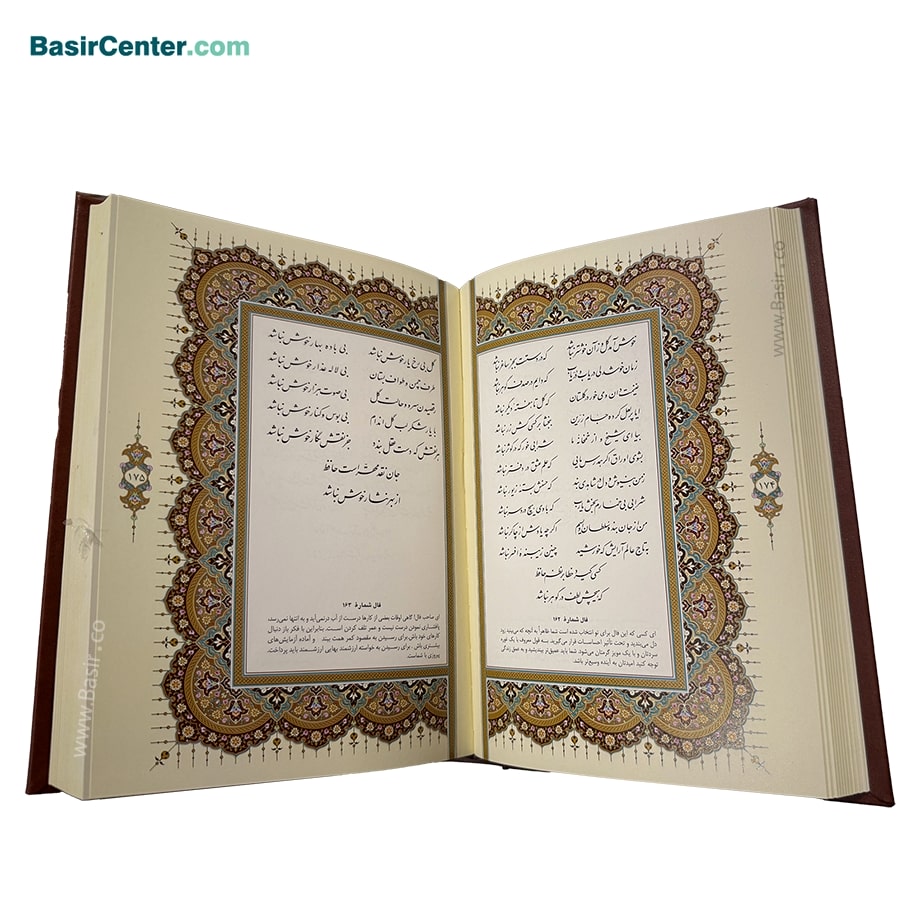 BasirCenter.com
www.Basir.co
۱۷۴
خوش آمد گل وز آن خوشتر نباشد که در دستت بجز ساغر نباشد
زمان خوشدلی دریاب و دریاب که دایم در صدف گوهر نباشد
غنیمت دان و می خور در گلستان که گل تا هفته دیگر نباشد
ایا پر لعل کرده جام زرین ببخشا بر کسی کش زر نباشد
بیا ای شیخ و از خمخانه ما شرابی خور که در کوثر نباشد
بشوی اوراق اگر همدرس مایی که علم عشق در دفتر نباشد
ز من بنیوش و دل در شاهدی بند که حسنش بسته زیور نباشد
شرابی بی خمارم بخش یارب که با وی هیچ درد سر نباشد
من از جان بنده سلطان اویسم اگر چه یادش از چاکر نباشد
به تاج عالم آرایش که خورشید چنین زیبنده افسر نباشد
کسی گیرد خطا بر نظم حافظ
که هیچش لطف در گوهر نباشد
فال شمارهٔ ۱۶۲
ای کسی که این فال برای تو انتخاب شده است شما ظاهراً به آنچه که می‌بینید زود
دل می‌بندید و تحت تأثیر احساسات قرار می‌گیرید. به قول معروف با یک غوره
سردتان و با یک مویز گرمتان می‌شود. شما باید عمیق‌تر بیندیشید و به عمق زندگی
توجه کنید امیدتان به آینده وسیع‌تر باشد.
۱۷۵
گل بی رخ یار خوش نباشد بی باده بهار خوش نباشد
طرف چمن و طواف بستان بی لاله عذار خوش نباشد
رقصیدن سرو و حالت گل بی صوت هزار خوش نباشد
با یار شکر لب گل اندام بی بوس و کنار خوش نباشد
هر نقش که دست عقل بندد جز نقش نگار خوش نباشد
جان نقد محقر است حافظ
از بهر نثار خوش نباشد
فال شمارهٔ ۱۶۳
ای صاحب فال! گاهی اوقات بعضی از کارها درست از آب درنمی‌آید و به انتها نمی‌رسد،
پافشاری نمودن درست نیست و عمر تلف کردن است. بنابراین با فکر باز دنبال
کارهای خود باش. برای رسیدن به مقصود کمر همت ببند و آماده آزمایش‌های
بیشتری باش. برای رسیدن به خواسته ارزشمند بهایی ارزشمند باید پرداخت.
پیروزی با شماست.
www.Basir.co